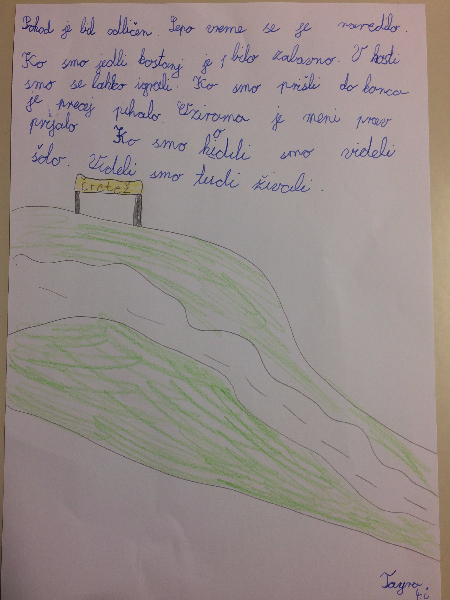 Pohod je bil odličen. Lepo vreme se je naredilo.
Ko smo jedli kostanj je bilo zabavno. V hosti
smo se lahko igrali. Ko smo prišli do konca
je precej pihalo. Oziroma je meni prav
prijalo Ko smo hodili smo videli
šolo. Videli smo tudi živali.
Crotež